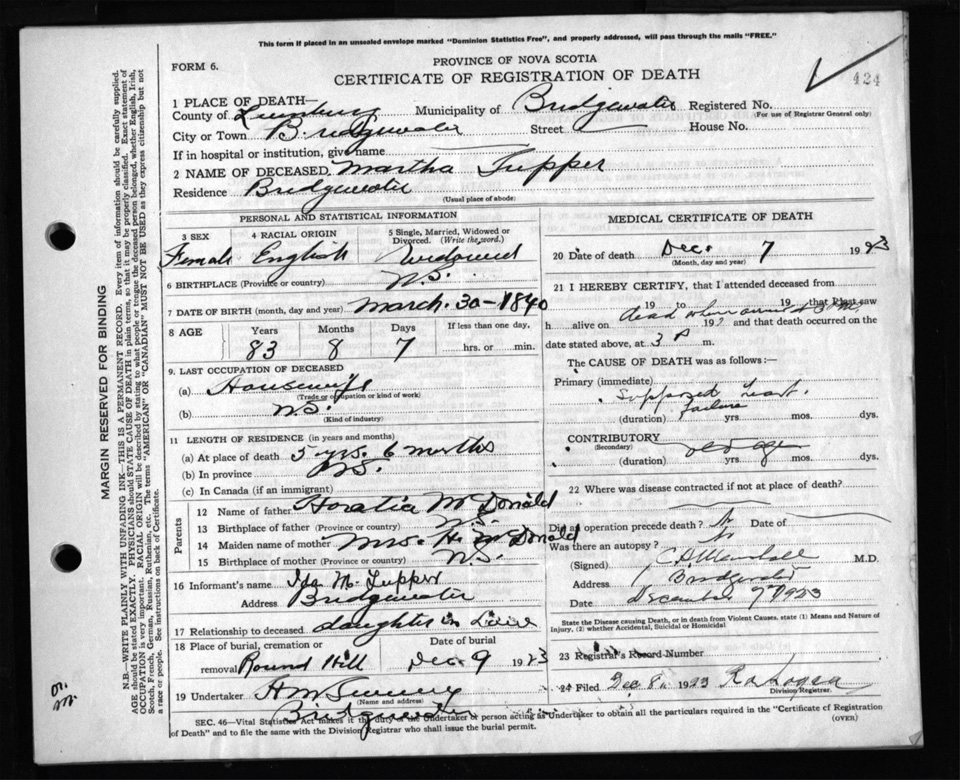 This form if placed in an unsealed envelope marked "Dominion Statistics Free", and properly addressed, will pass through the mails "FREE."
FORM 6.
PROVINCE OF NOVA SCOTIA
CERTIFICATE OF REGISTRATION OF DEATH
424
1 PLACE OF DEATH—
County of Lunenburg Municipality of Bridgewater Registered No.
(For use of Registrar General only)
City or Town Bridgewater Street House No.
If in hospital or institution, give name
2 NAME OF DECEASED Martha Tupper
Residence Bridgewater
(Usual place of abode)
PERSONAL AND STATISTICAL INFORMATION
3 SEX 4 RACIAL ORIGIN 5 Single, Married, Widowed or Divorced. (Write the word.)
Female English Widowed
6 BIRTHPLACE (Province or country) N.S.
7 DATE OF BIRTH (month, day and year) March 30-1840
8 AGE Years Months Days If less than one day,
83 8 7 hrs. or min.
9. LAST OCCUPATION OF DECEASED
(a) Housewife
(Trade or occupation or kind of work)
(b) N.S.
(Kind of industry)
11 LENGTH OF RESIDENCE (in years and months)
(a) At place of death 5 yrs. 6 months
(b) In province N.S.
(c) In Canada (if an immigrant)
Parents
12 Name of father Horatia McDonald
13 Birthplace of father (Province or country) N.S.
14 Maiden name of mother Mrs. H. McDonald
15 Birthplace of mother (Province or country) N.S.
16 Informant's name Ida M. Tupper
Address Bridgewater
17 Relationship to deceased daughter in Law
18 Place of burial, cremation or removal Date of burial
Round Hill Dec 9 1923
19 Undertaker H M
(Name and address)
Bridgewater
MEDICAL CERTIFICATE OF DEATH
20 Date of death Dec. 7 1923
(Month, day and year)
21 I HEREBY CERTIFY, that I attended deceased from
19 to 19 that I last saw
dead when
h alive on 192 and that death occurred on
date stated above, at 3 m.
The CAUSE OF DEATH was as follows:—
Primary (immediate)
Supposed heart failure
(duration) yrs. mos. dys.
CONTRIBUTORY
(Secondary)
old age
(duration) yrs. mos. dys.
22 Where was disease contracted if not at place of death?
Did an operation precede death? No Date of
Was there an autopsy? No
(Signed) C A Marshall M.D.
Address Bridgewater
Date December 7 1923
State the Disease causing Death, or in death from Violent Causes, state (1) Means and Nature of Injury, (2) whether Accidental, Suicidal or Homicidal
23 Registrar's Record Number
24 Filed Dec 8 1923
Division Registrar.
SEC. 46—Vital Statistics Act makes it the duty of the Undertaker or person acting as Undertaker to obtain all the particulars required in the "Certificate of Registration
of Death" and to file the same with the Division Registrar who shall issue the burial permit.
(OVER)
MARGIN RESERVED FOR BINDING
N.B.—WRITE PLAINLY WITH UNFADING INK—THIS IS A PERMANENT RECORD. Every item of information should be carefully supplied.
AGE should be stated EXACTLY. PHYSICIANS should STATE CAUSE OF DEATH in plain terms, so that it may be properly classified. Exact statement of
OCCUPATION is very important. RACIAL ORIGIN will be described by stating to what people or tongue the deceased person belonged, whether English, Irish,
Scotch, French, German, Russian, Ruthenian, etc. The terms "AMERICAN" OR "CANADIAN" MUST NOT BE USED as they express citizenship but not
a race or people. See instructions on back of Certificate.